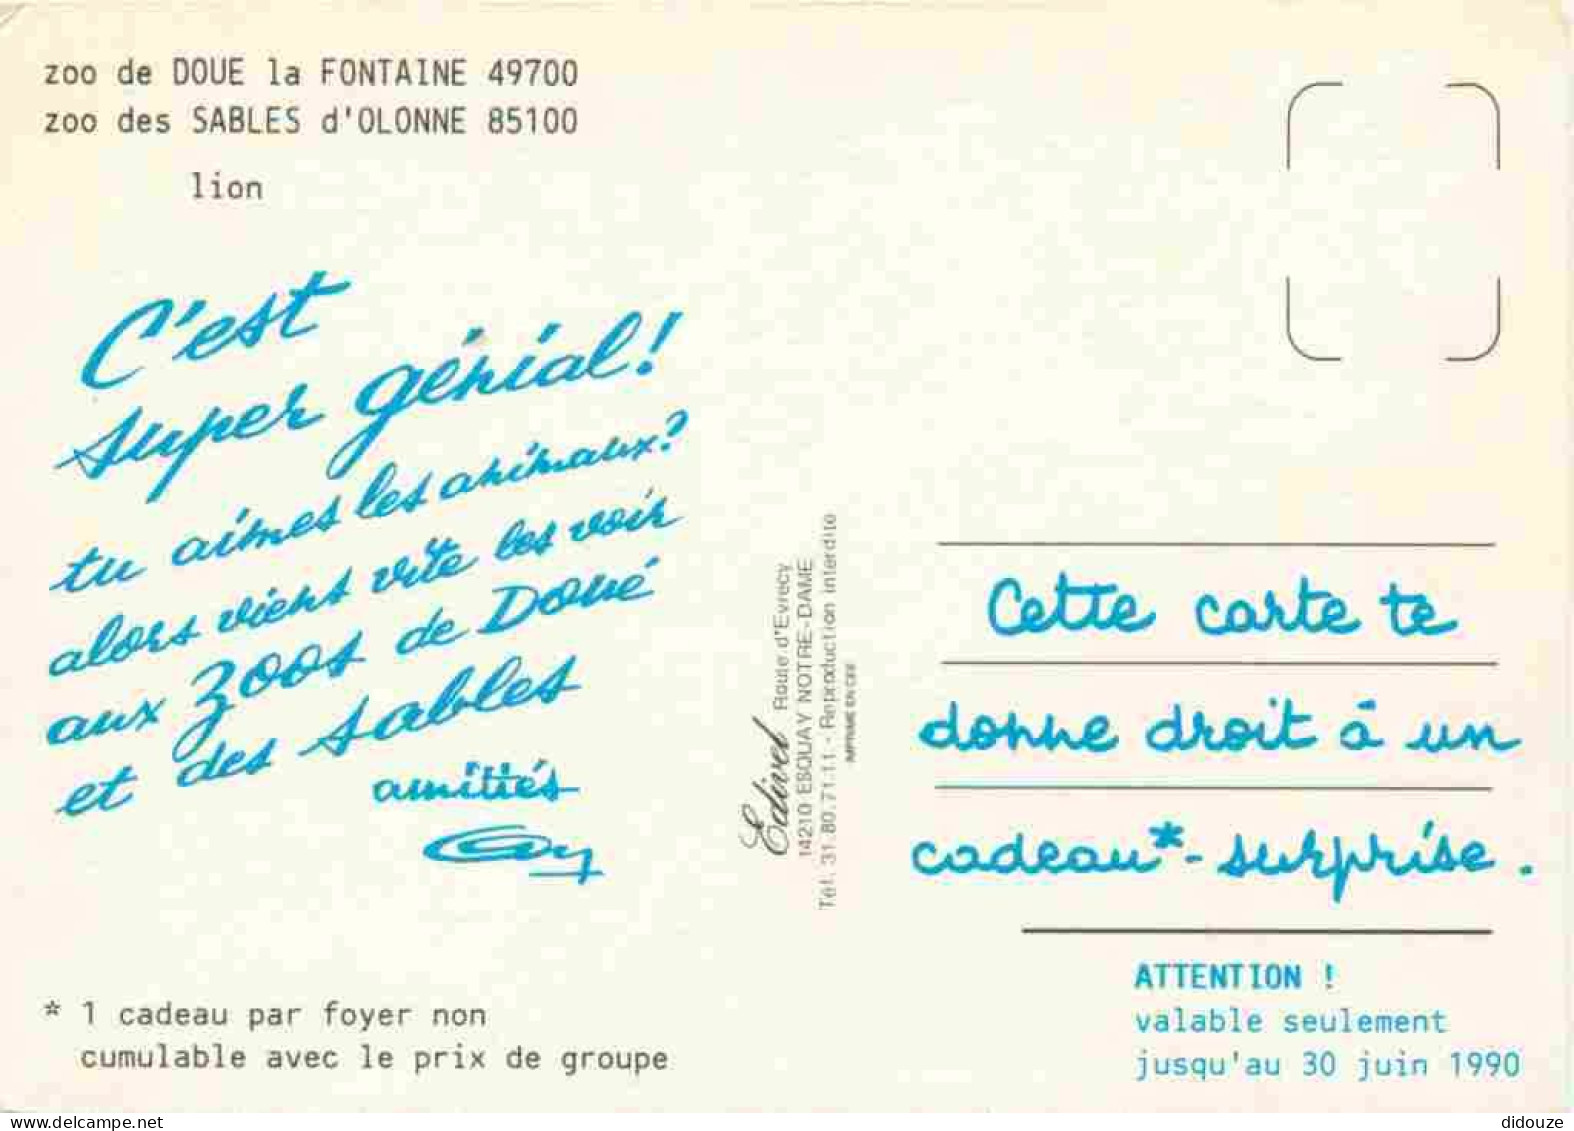 zoo de DOUE la FONTAINE 49700
zoo des SABLES d'OLONNE 85100
lion
C'est
super génial!
tu aimes les animaux?
alors viens vite les voir
aux zoos de Doué
et des Sables
amitiés
* 1 cadeau par foyer non
cumulable avec le prix de groupe
Edivel Route d'Evrecy
14210 ESQUAY NOTRE-DAME
Tél. 31.80.71.11 - Reproduction interdite
IMPRIME EN CEE
Cette carte te
donne droit à un
cadeau*-surprise.
ATTENTION !
valable seulement
jusqu'au 30 juin 1990
didouze